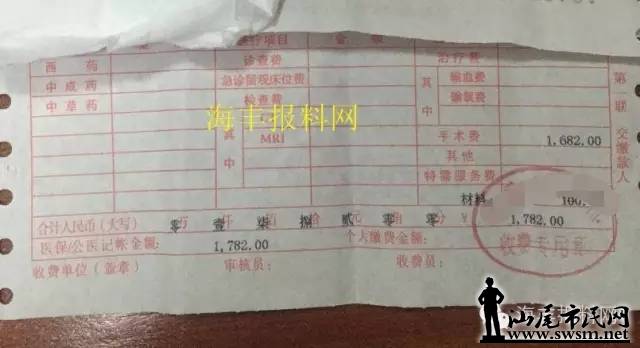 疗项目 金 额
西 药 诊查费 治疗费 第一联 交缴款人
中成药 急诊留观床位费 其中 输血费
中草药 检查费 输氧费
海丰报料网
其中 MRI 手术费 1,682.00
其他
特需服务费
材料 100.
合计人民币(大写) 零 万 壹 仟 柒 捌 拾 贰 元 零 角 零 分 ¥ 1,782.00
医保/公医记帐金额: 1,782.00 个人缴费金额:
收费专用章
收费单位(盖章) 审核员: 收费员:
海丰报料网
汕尾市民网
www.swsm.net